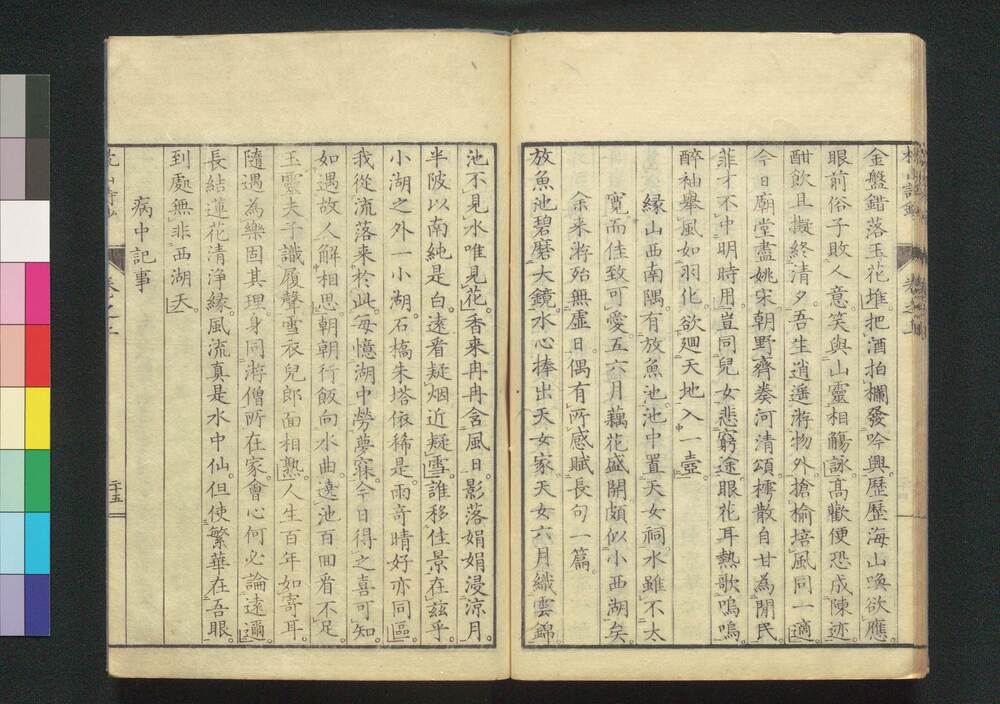 金盤錯落玉花堆把酒拍欄發吟興歷歷海山喚欲應
眼前俗子敗人意笑與山靈相觴詠高歡便恐成陳迹
酣飲且擬終清夕吾生逍遥游物外搶榆培風同一適
今日廟堂盡姚宋朝野齊奏河清頌樗散自甘為閒民
菲才不中明時用豈同兒女悲窮途眼花耳熱歌嗚嗚
醉袖舉風如羽化欲廻天地入一壺
緑山西南隅有放魚池池中置天女祠水雖不太
寛而佳致可愛五六月藕花盛開頗似小西湖矣
余来游殆無虛日偶有所感賦長句一篇
放魚池碧磨大鏡水心捧出天女家天女六月織雲錦
池不見水唯見花香来冉冉含風日影落娟娟浸涼月
半陂以南純是白遠看疑烟近疑雪誰移佳景在兹乎
小湖之外一小湖石橋朱塔依稀是雨奇晴好亦同區
我從流落来於此每憶湖中勞夢寐今日得之喜可知
如遇故人解相思朝朝行飯向水曲遶池百回看不足
玉靈夫子識履聲雪衣兒郎面相熟人生百年如寄耳
隨遇為樂固其理身同游僧所在家會心何必論遠邇
長結蓮花清浄縁風流真是水中仙但使繁華在吾眼
到處無非西湖天
病中記事
二十五